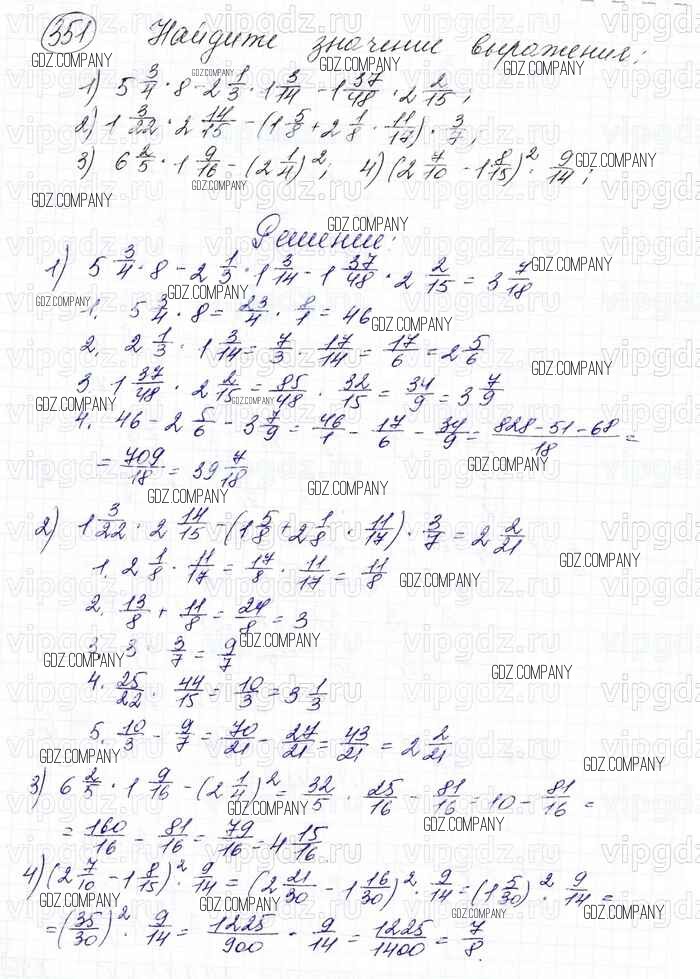 351 Найдите значение выражения:
1) 5 3/4 · 8 - 2 1/3 · 1 3/14 - 1 37/48 · 2 2/15;
2) 1 3/22 · 2 14/15 - (1 5/8 + 2 1/8 · 11/17) · 3/7;
3) 6 2/5 · 1 9/16 - (2 1/4)²; 4) (2 7/10 - 1 8/15)² · 9/14;
Решение:
1) 5 3/4 · 8 - 2 1/3 · 1 3/14 - 1 37/48 · 2 2/15 = 3 7/18
1. 5 3/4 · 8 = 23/4 · 8/1 = 46
2. 2 1/3 · 1 3/14 = 7/3 · 17/14 = 17/6 = 2 5/6
3 1 37/48 · 2 2/15 = 85/48 · 32/15 = 34/9 = 3 7/9
4. 46 - 2 5/6 - 3 7/9 = 46/1 - 17/6 - 34/9 = 828-51-68/18 =
= 709/18 = 39 7/18
2) 1 3/22 · 2 14/15 - (1 5/8 + 2 1/8 · 11/17) · 3/7 = 2 2/21
1. 2 1/8 · 11/17 = 17/8 · 11/17 = 11/8
2. 13/8 + 11/8 = 24/8 = 3
3. 3 · 3/7 = 9/7
4. 25/22 · 44/15 = 10/3 = 3 1/3
5. 10/3 - 9/7 = 70/21 - 27/21 = 43/21 = 2 2/21
3) 6 2/5 · 1 9/16 - (2 1/4)² = 32/5 · 25/16 - 81/16 = 10 - 81/16 =
= 160/16 - 81/16 = 79/16 = 4 15/16
4) (2 7/10 - 1 8/15)² · 9/14 = (2 21/30 - 1 16/30)² · 9/14 = (1 5/30)² · 9/14 =
= (35/30)² · 9/14 = 1225/900 · 9/14 = 1225/1400 = 7/8.
GDZ.COMPANY
vipgdz.ru